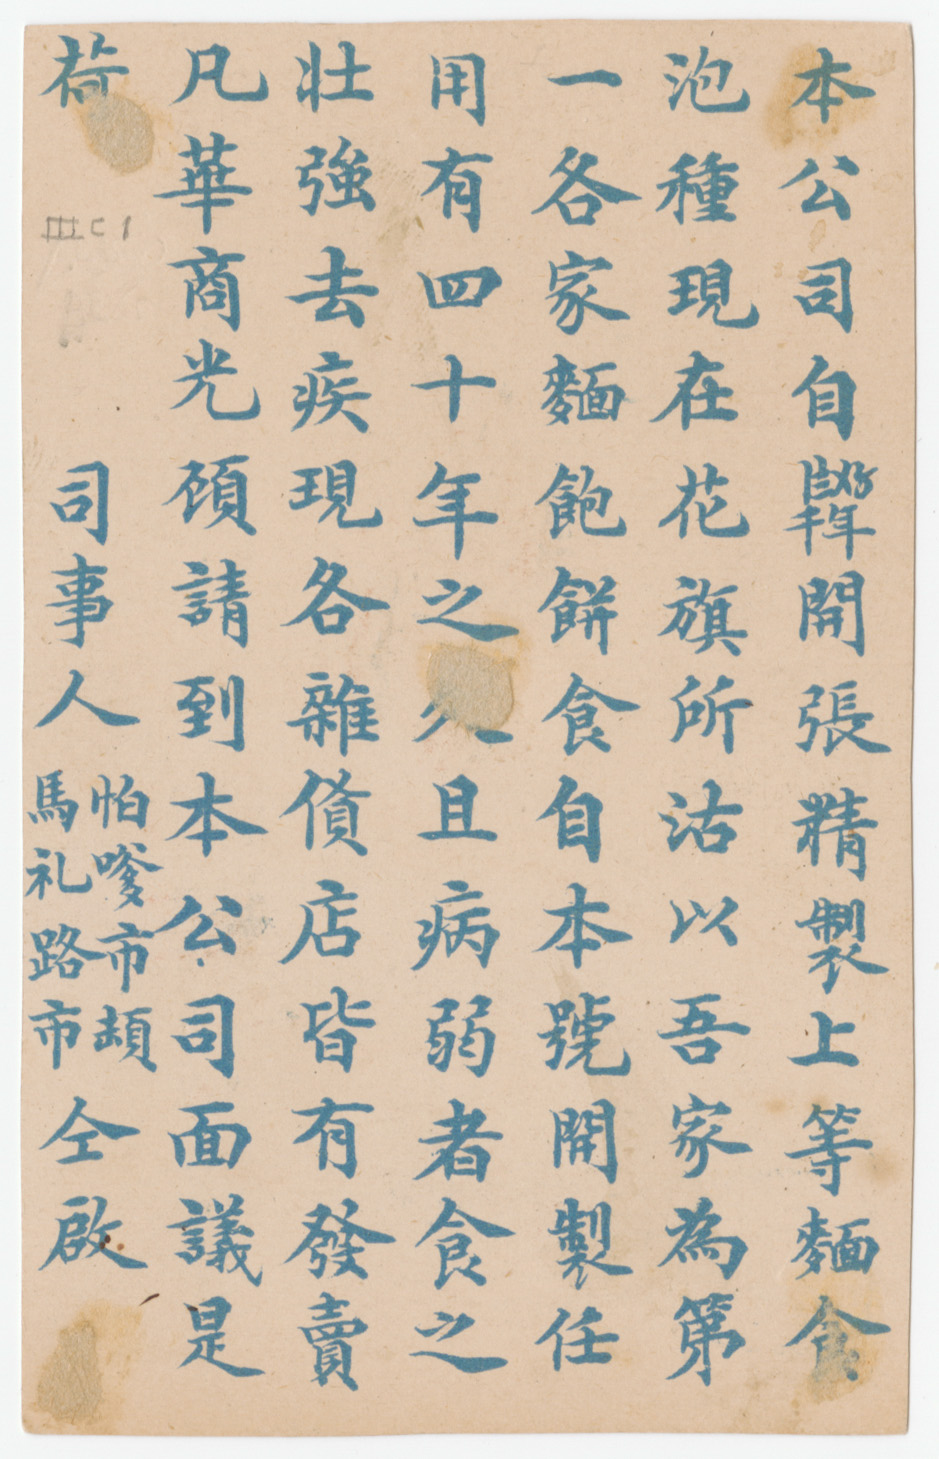 本公司自開張精製上等麵食
泡種現在花旗所沽以吾家為第
一各家麵飽餅食自本號開製任
用有四十年之久且病弱者食之
壯強去疾現各雜貨店皆有發賣
凡華商光顧請到本公司面議是
荷
司事人
怕嗲市
馬礼路市
仝啟
III C 1